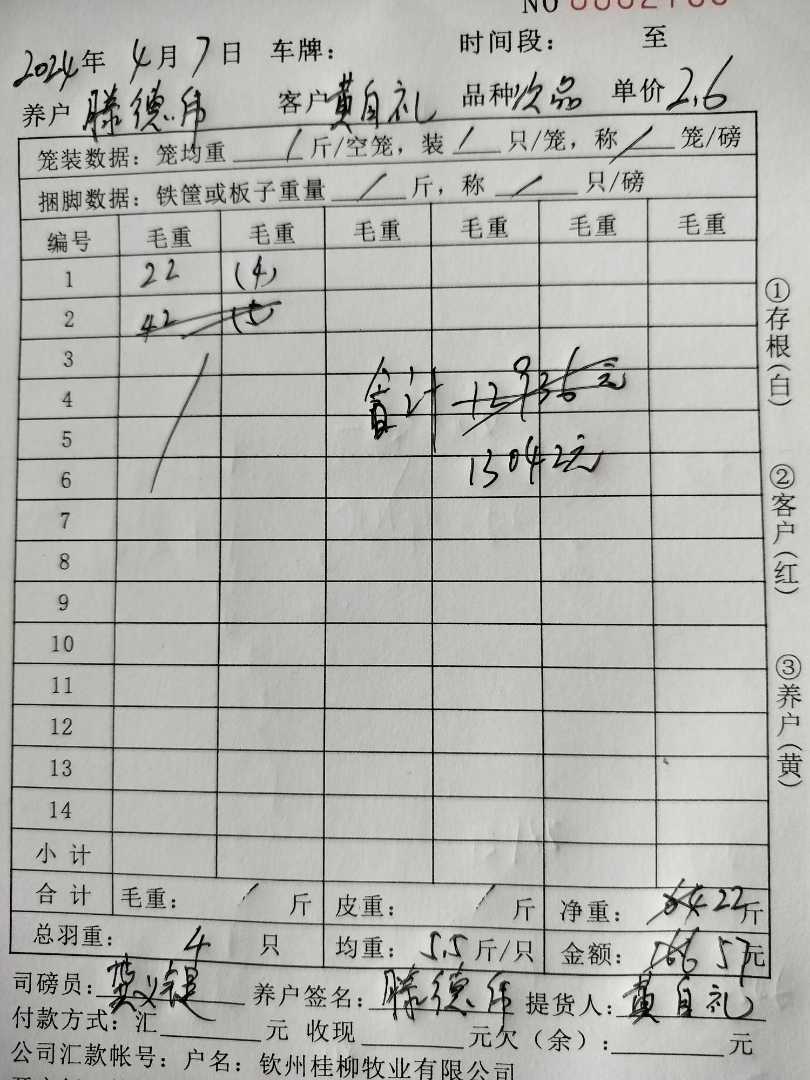 NO
2024年 4月7日 车牌： 时间段： 至
养户 滕德伟 客户 黄自礼 品种 次品 单价 2.6
笼装数据：笼均重 / 斤/空笼，装 / 只/笼，称 / 笼/磅
捆脚数据：铁筐或板子重量 / 斤，称 / 只/磅
编号 毛重 毛重 毛重 毛重 毛重 毛重
1 22 (4)
2 42 (5)
3
4 合计 12936元
5
6 13042元
7
8
9
10
11
12
13
14
小 计
合 计 毛重： / 斤 皮重： / 斤 净重： 64 22斤
总羽重： 4 只 均重： 5.5斤/只 金额： 166 57元
司磅员： 养户签名：滕德伟 提货人：黄自礼
付款方式：汇 元 收现 元欠（余）： 元
公司汇款帐号：户名：钦州桂柳牧业有限公司
①存根（白）
②客户（红）
③养户（黄）